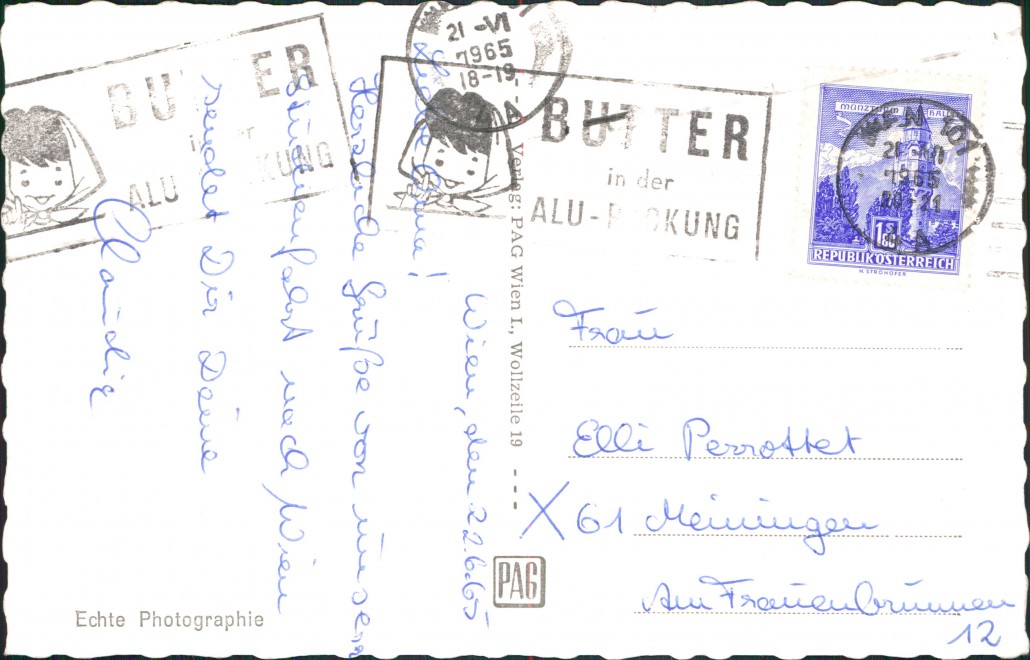 BUTTER
in der
ALU-PACKUNG
21-VI
1965
18-19
BUTTER
in der
ALU-PACKUNG
WIEN 101
21-VI
1965
20-21
1.80
REPUBLIK ÖSTERREICH
H. STROHOFER
Wien, den 22.6.65
Liebe Oma!
Herzliche Grüße von unserer
Studienfahrt nach Wien
sendet Dir Deine
Claudia
Verlag: PAG Wien I., Wollzeile 19
Frau
Elli Perrottet
X 61 Meiningen
Am Frauenbrunnen
12
PAG
Echte Photographie